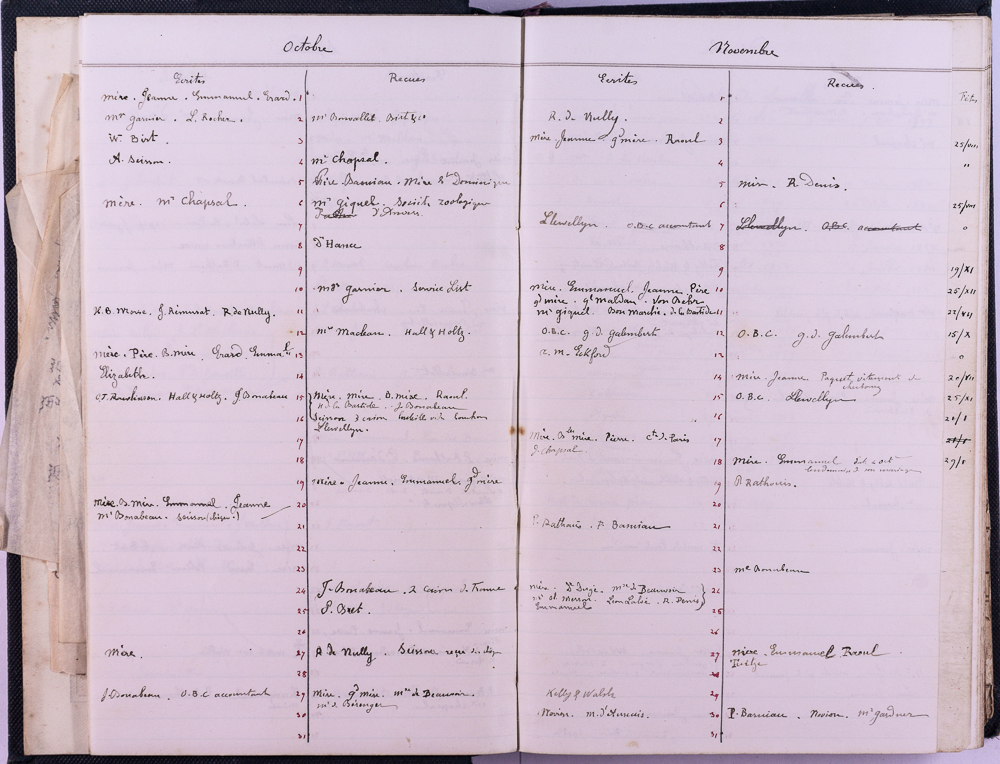 Octobre
Ecrites Recues
mère. Jeanne. Emmanuel. Erard. 1
mr garnier. L. Rocher. 2 mr Bonvallet. Birt & Co
W. Birt. 3
A. Seisson. 4 mr Chapsal.
5 Père Barniau. Mère St Dominique
mère. mr Chapsal. 6 mr giquel. Société zoologique
d'Anvers
7
8 d'Hance
9
10 mgr garnier. Service List
H.B. Morse. J. Rémusat. R de Nully. 11
12 mr Macleau. Hall & Holtz.
mère. Père. B. mère. Erard. Emmal 13
Elizabeth. 14
O.T. Rawlinson. Hall & Holtz. J. Bonabeau 15 Mère. mère. B. mère. Raoul.
H de la Bastide. J. Bonabeau
16 Seisson 2 caisses
Llewellyn.
17
18
19 mère. Jeanne. Emmanuel. gd mère
mère. B. mère. Emmanuel. Jeanne 20
mr Bonabeau. Seisson
21
22
23
24 J. Bonabeau. 2 caisses de France
25 P. Bret.
26
mère. 27 R de Nully. Seisson reçu de
28
J. Bonabeau. O.B.C accountant 29 Mère. gd mère. mme de Beauvoir.
mr de Bérenger
30
31
Novembre
Ecrites Recues.
Fêtes
1
R. de Nully. 2
mère Jeanne gd mère. Raoul 3 25/VII
4 "
5 mère. R. Denis.
6 25/VII
Llewellyn. O.B.C accountant 7 Llewellyn. O.B.C. accountant 0
8
9 19/XI
mère. Emmanuel. Jeanne Père 10 25/XII
gd mère. gl Maldan. Von Oehr
mr giquel. Bon Marché. de la Bastide 11 22/XII
O.B.C. g. d. Galembert 12 O.B.C. g. d. Galembert 15/X
R. M. Eckford 13 0
14 mère. Jeanne. Paquet vêtements de 20/VII
15 O.B.C. Llewellyn 25/XI
16 20/1
mère. Bne mère. Pierre. Cte de Paris 17
J. Chapsal.
18 mère. Emmanuel dat 2 oct 29/1
19 P. Rathouis.
20
P. Rathouis. P. Barniau 21
22
23 mr Bonabeau
mère. mme de Beauvoir 24
Léon R. Denis
Emmanuel 25
26
27 mère. Emmanuel Raoul
28
Kelly & Walsh 29
Novion. m. d'Aunais. 30 P. Barniau. Novion. mr gardner
31